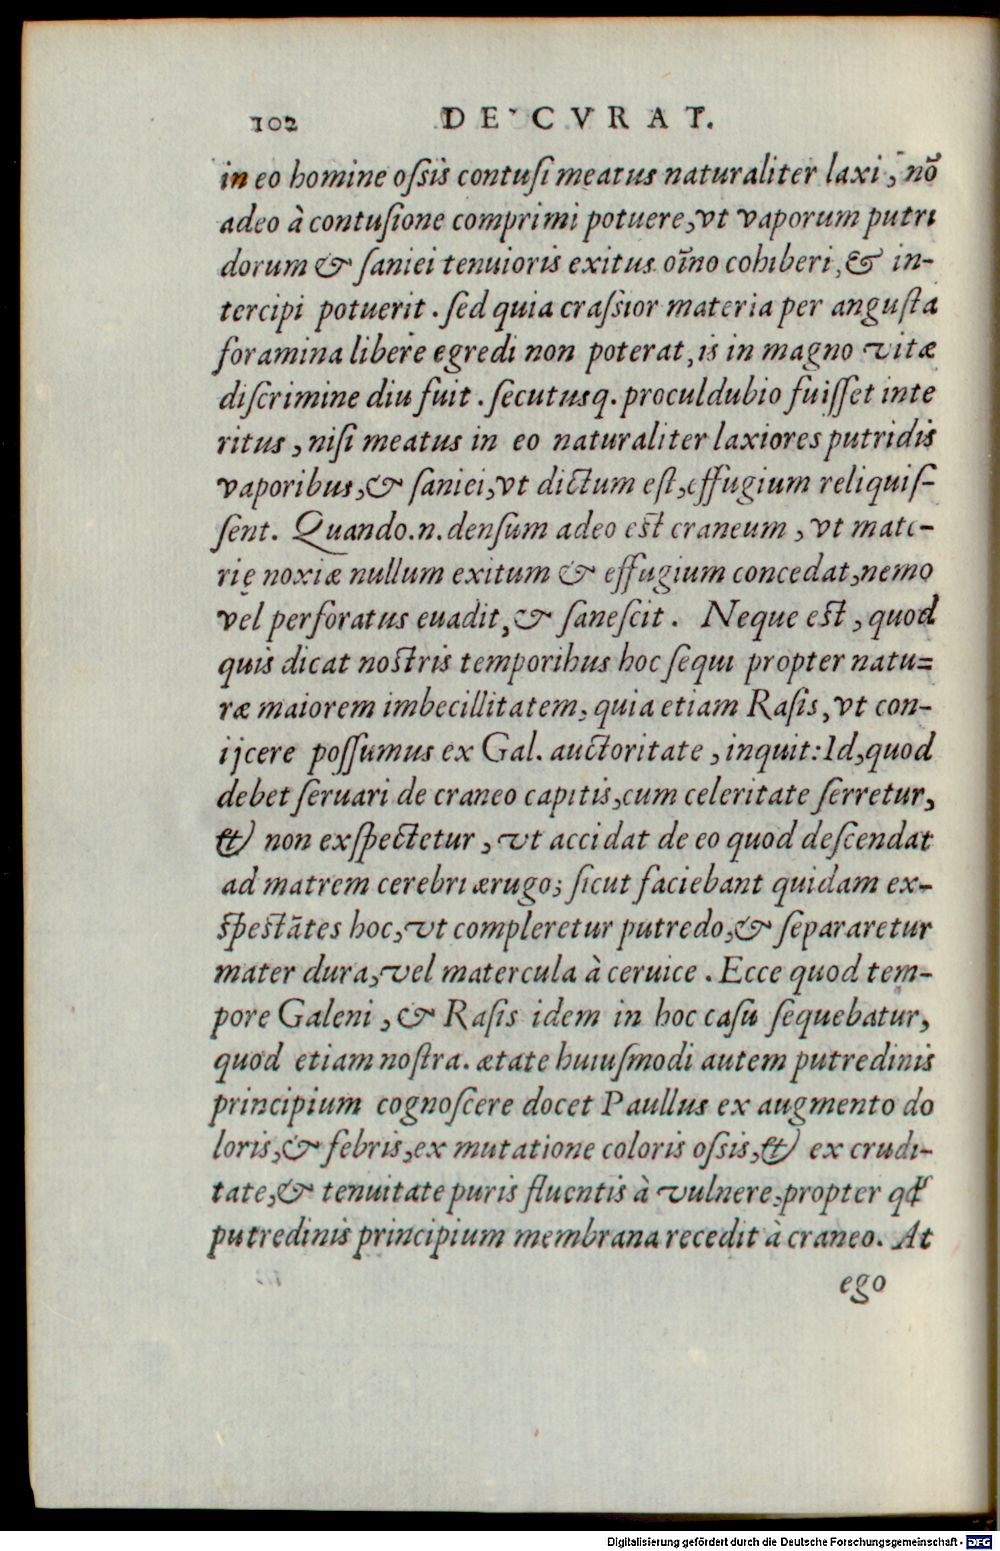 102 DE CVRAT.
in eo homine oſsis contuſi meatus naturaliter laxi, nõ
adeo à contuſione comprimi potuere, vt vaporum putri
dorum & ſaniei tenuioris exitus oĩno cohiberi, & in-
tercipi potuerit. ſed quia craſsior materia per anguſta
foramina libere egredi non poterat, is in magno vitæ
diſcrimine diu fuit. ſecutusq. proculdubio fuiſſet inte
ritus, niſi meatus in eo naturaliter laxiores putridis
vaporibus, & ſaniei, vt dictum eſt, effugium reliquiſ-
ſent. Quando.n. denſum adeo est craneum, vt mate-
rię noxiæ nullum exitum & effugium concedat, nemo
vel perforatus euadit, & ſaneſcit. Neque est, quod
quis dicat nostris temporibus hoc ſequi propter natu=
ræ maiorem imbecillitatem, quia etiam Raſis, vt con-
ijcere poſſumus ex Gal. auctoritate, inquit: Id, quod
debet ſeruari de craneo capitis, cum celeritate ſerretur,
& non exſpectetur, vt accidat de eo quod deſcendat
ad matrem cerebri ærugo; ſicut faciebant quidam ex-
ſpestãtes hoc, vt compleretur putredo, & ſepararetur
mater dura, vel matercula à ceruice. Ecce quod tem-
pore Galeni, & Raſis idem in hoc caſu ſequebatur,
quod etiam noſtra. ætate huiuſmodi autem putredinis
principium cognoſcere docet Paullus ex augmento do
loris, & febris, ex mutatione coloris oſsis, & ex crudi-
tate, & tenuitate puris fluentis à vulnere, propter qđ
putredinis principium membrana recedit à craneo. At
ego
Digitalisierung gefördert durch die Deutsche Forschungsgemeinschaft - DFG